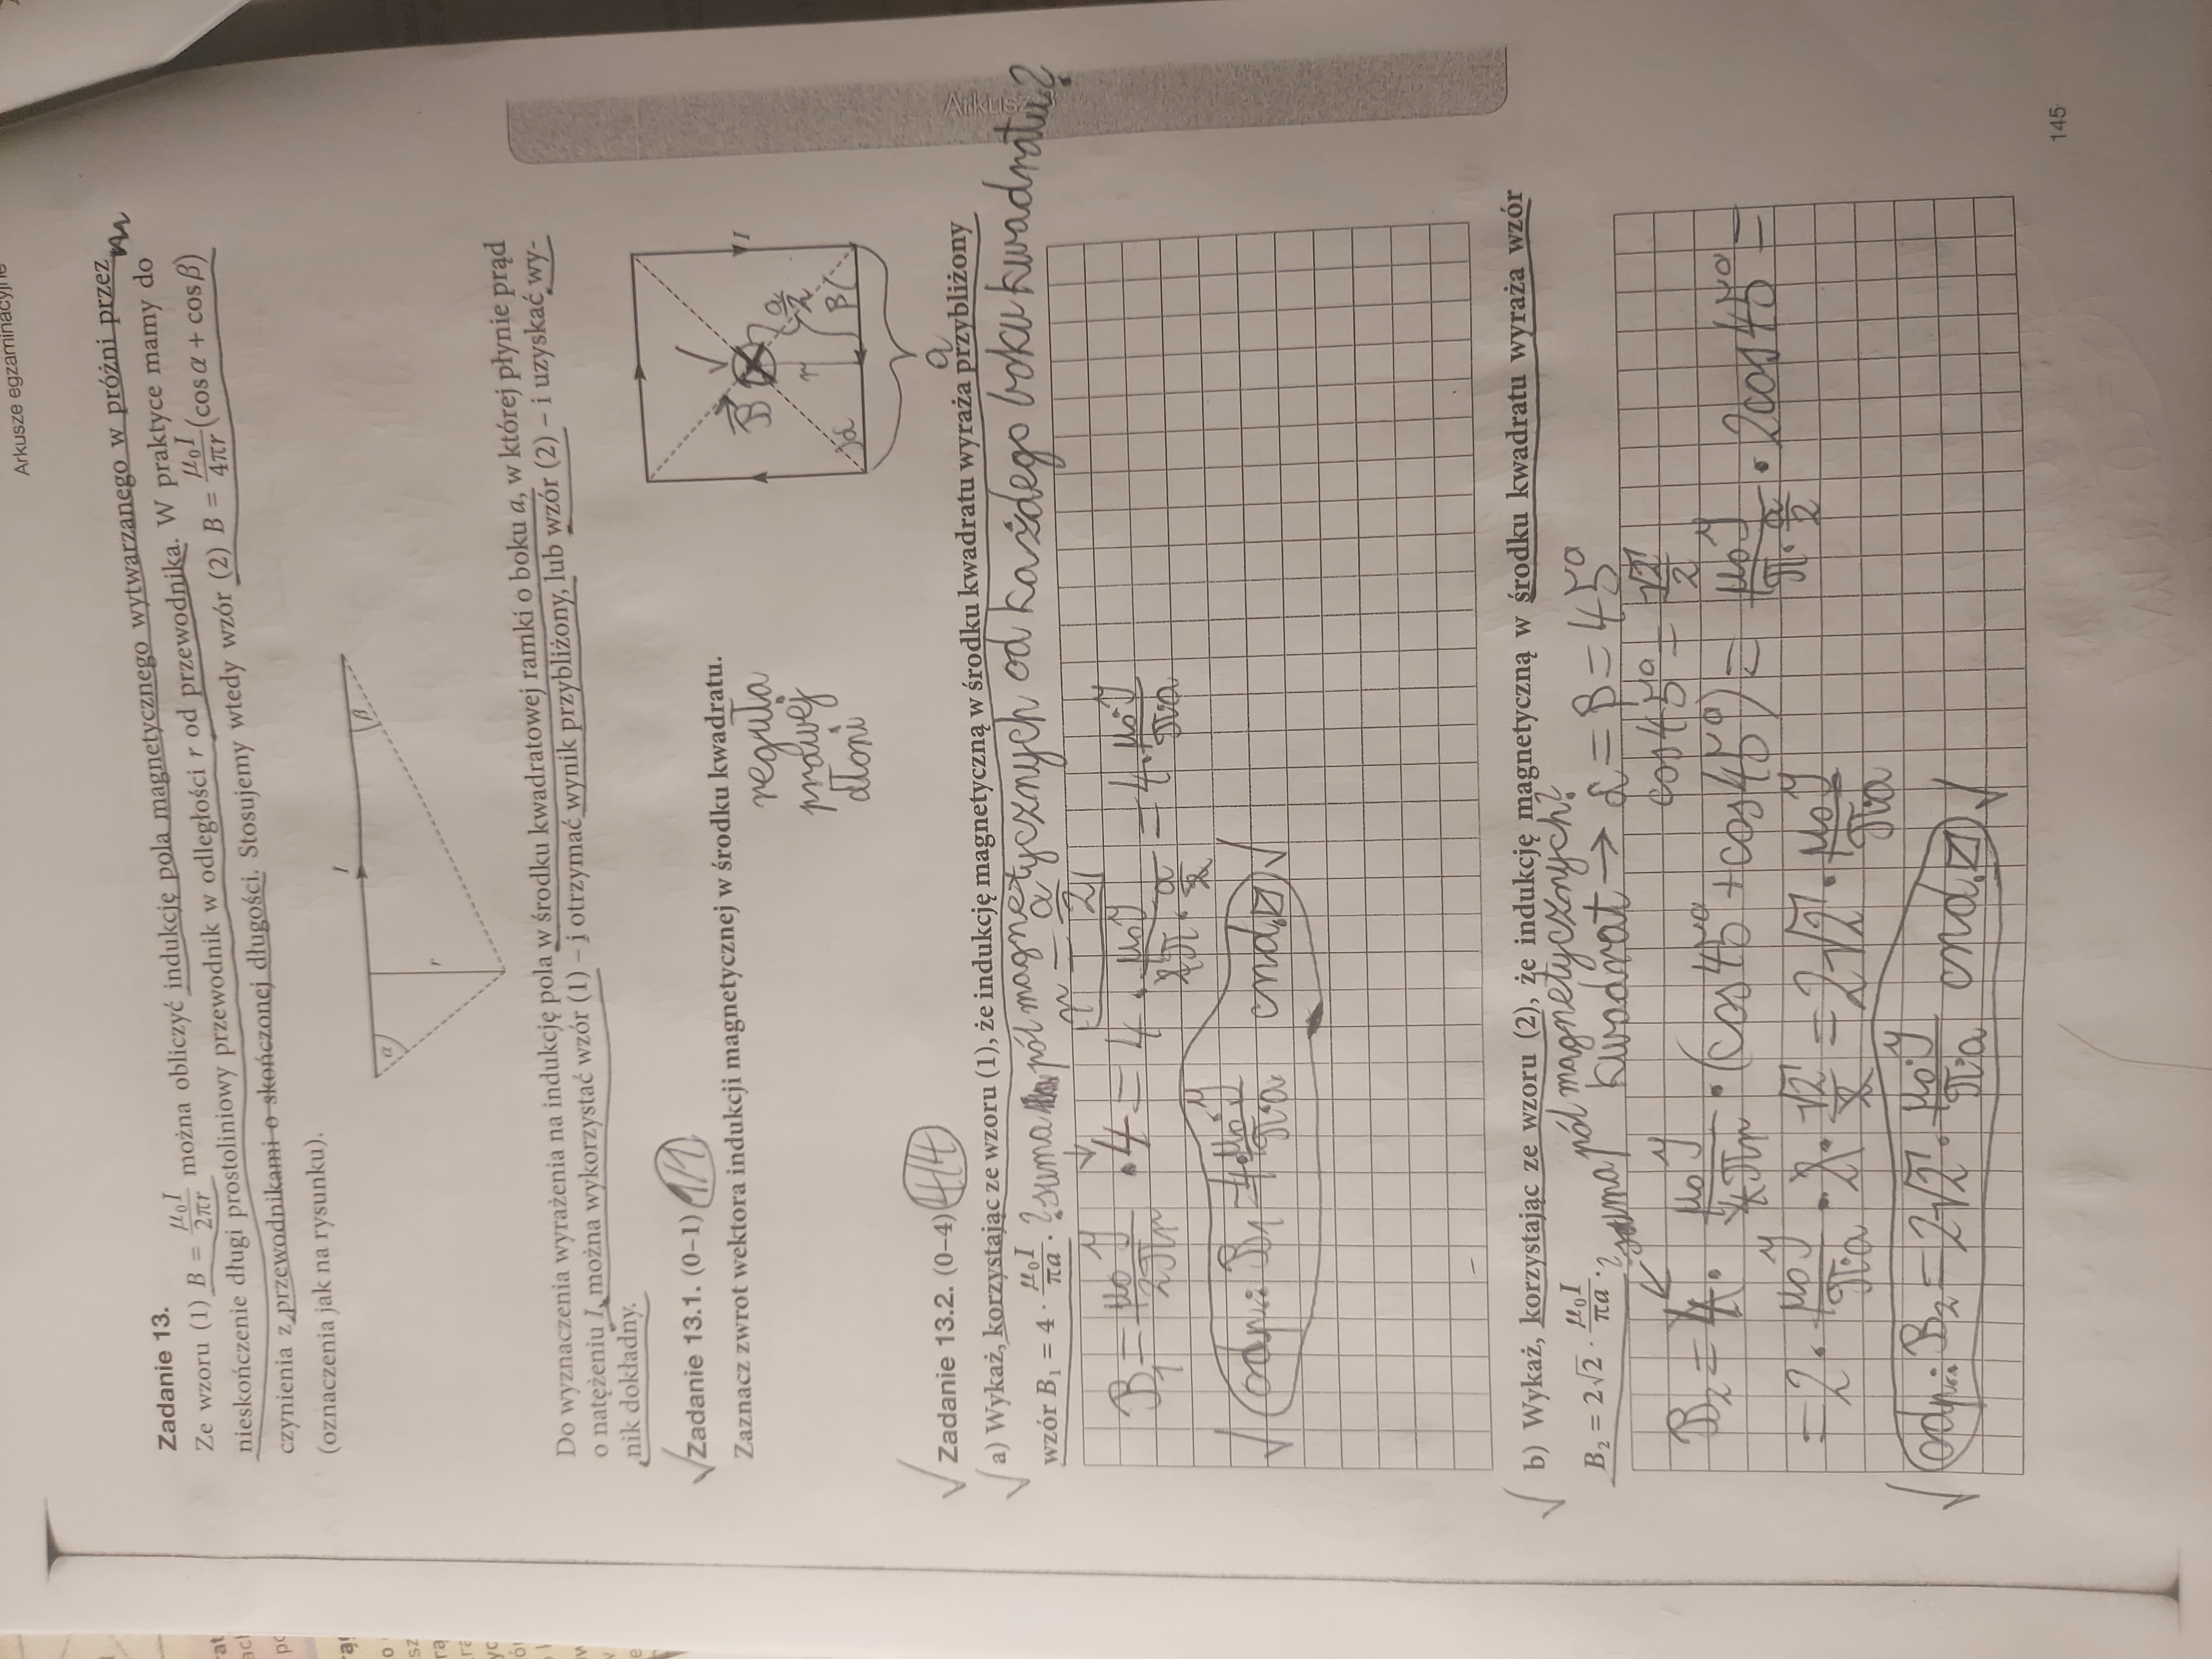 Arkusze egzaminacyjne
Zadanie 13.
Ze wzoru (1) B = μ₀I / 2πr można obliczyć indukcję pola magnetycznego wytwarzanego w próżni przez
nieskończenie długi prostoliniowy przewodnik w odległości r od przewodnika. W praktyce mamy do
czynienia z przewodnikami o skończonej długości. Stosujemy wtedy wzór (2) B = μ₀I / 4πr (cos α + cos β)
(oznaczenia jak na rysunku).
I
α
β
r
Do wyznaczenia wyrażenia na indukcję pola w środku kwadratowej ramki o boku a, w której płynie prąd
o natężeniu I, można wykorzystać wzór (1) – i otrzymać wynik przybliżony, lub wzór (2) – i uzyskać wy-
nik dokładny.
√ Zadanie 13.1. (0–1) 1/1
Zaznacz zwrot wektora indukcji magnetycznej w środku kwadratu.
reguła
prawej
dłoni
I
B
r
a/2
α
β
a
√ Zadanie 13.2. (0–4) 4/4
√ a) Wykaż, korzystając ze wzoru (1), że indukcję magnetyczną w środku kwadratu wyraża przybliżony
wzór B₁ = 4 · μ₀I / πa. ? suma pól magnetycznych od każdego boku kwadratu?
r = a/2
B₁ = μ₀I / 2πr · 4 = 4 · μ₀I / 2π · a/2 = 4 · μ₀I / πa
√ odp.: B₁ = 4 · μ₀I / πa cnd. √
√ b) Wykaż, korzystając ze wzoru (2), że indukcję magnetyczną w środku kwadratu wyraża wzór
B₂ = 2√2 · μ₀I / πa. ? suma pól magnetycznych?
kwadrat → α = β = 45°
cos 45° = √2 / 2
B₂ = 4 · μ₀I / 4πr · (cos 45° + cos 45°) = μ₀I / π · a/2 · 2cos 45° =
= 2 · μ₀I / πa · 2 · √2 / 2 = 2√2 · μ₀I / πa
√ odp.: B₂ = 2√2 · μ₀I / πa cnd. √
Arkusz
145